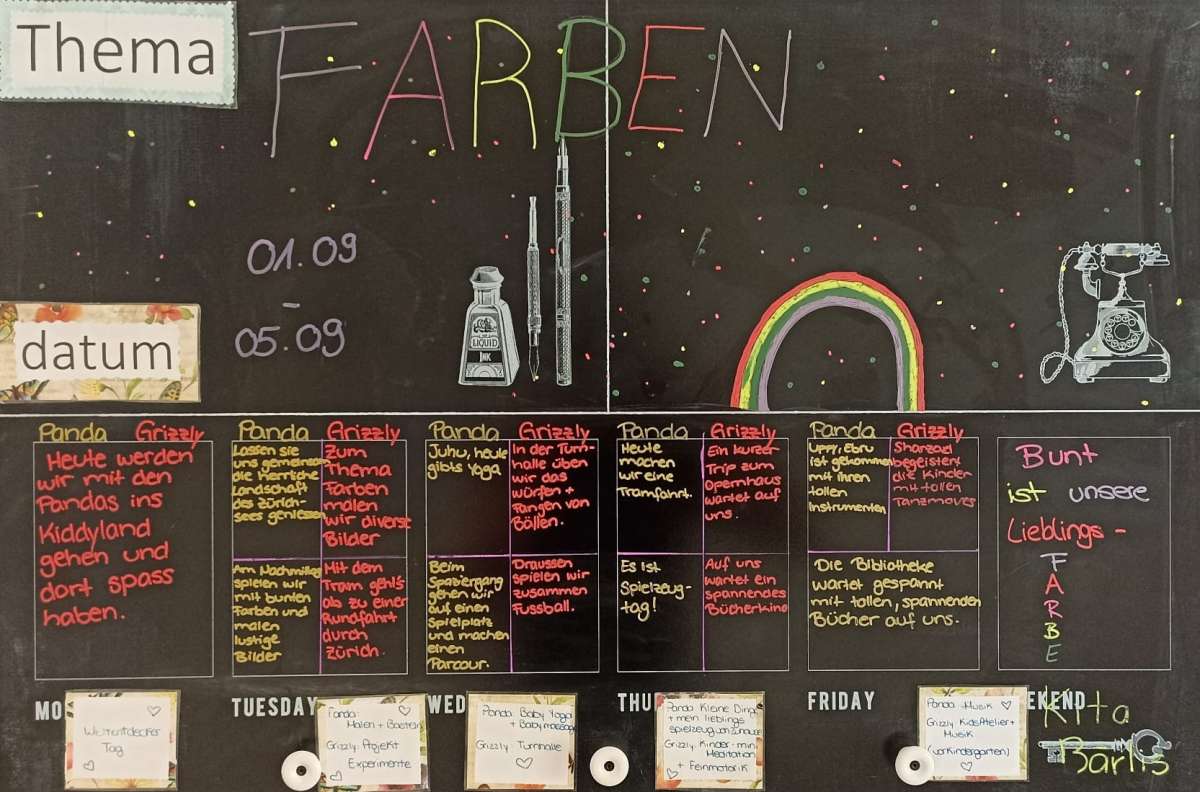 Thema
FARBEN
01.09
-
05.09
datum
LIQUID
INK
Panda Grizzly
Heute werden
wir mit den
Pandas ins
Kiddyland
gehen und
dort spass
haben.
Panda Grizzly
Lassen sie
uns gemeinsam
die herrliche
Landschaft
des Zürich
sees geniessen
Zum
Thema
Farben
malen
wir diverse
Bilder
Am Nachmittag
spielen wir
mit bunten
Farben und
malen
lustige
Bilder
Mit dem
Tram geht's
ab zu einer
Rundfahrt
durch
Zürich.
Panda Grizzly
Juhu, heute
gibts Yoga
In der Turn-
halle üben
wir das
würfen +
fangen von
Bällen.
Beim
Spaziergang
gehen wir
auf einen
Spielplatz
und machen
einen
Parcour.
Draussen
spielen wir
zusammen
Fussball.
Panda Grizzly
Heute
machen
wir eine
Tramfahrt.
Ein kurzer
Trip zum
Opernhaus
wartet auf
uns.
Es ist
Spielzeug-
tag!
Auf uns
wartet ein
spannendes
Bücherkino
Panda Grizzly
Uppy, Ebru
ist gekommen
mit ihren
tollen
Instrumenten
Sharzad
begeistert
die Kinder
mit tollen
Tanzmoves
Die Bibliotheke
wartet gespannt
mit tollen, spannenden
Bücher auf uns.
Bunt
ist unsere
Lieblings-
F
A
R
B
E
MO
TUESDAY
WED
THU
FRIDAY
EKEND
Weltentdecker
Tag
Panda:
Malen + Basteln
Grizzly: Projekt
Experimente
Panda: Baby Yoga
+ Babymassage
Grizzly: Turnhalle
Panda: Kleine Dinge
+ mein lieblings
spielzeug von Zuhause
Grizzly: Kinder-mini
Meditation
+ Feinmotorik
Panda: Musik
Grizzly: KidsAtelier+
Musik
(vorkindergarten)
Kita
Barlis